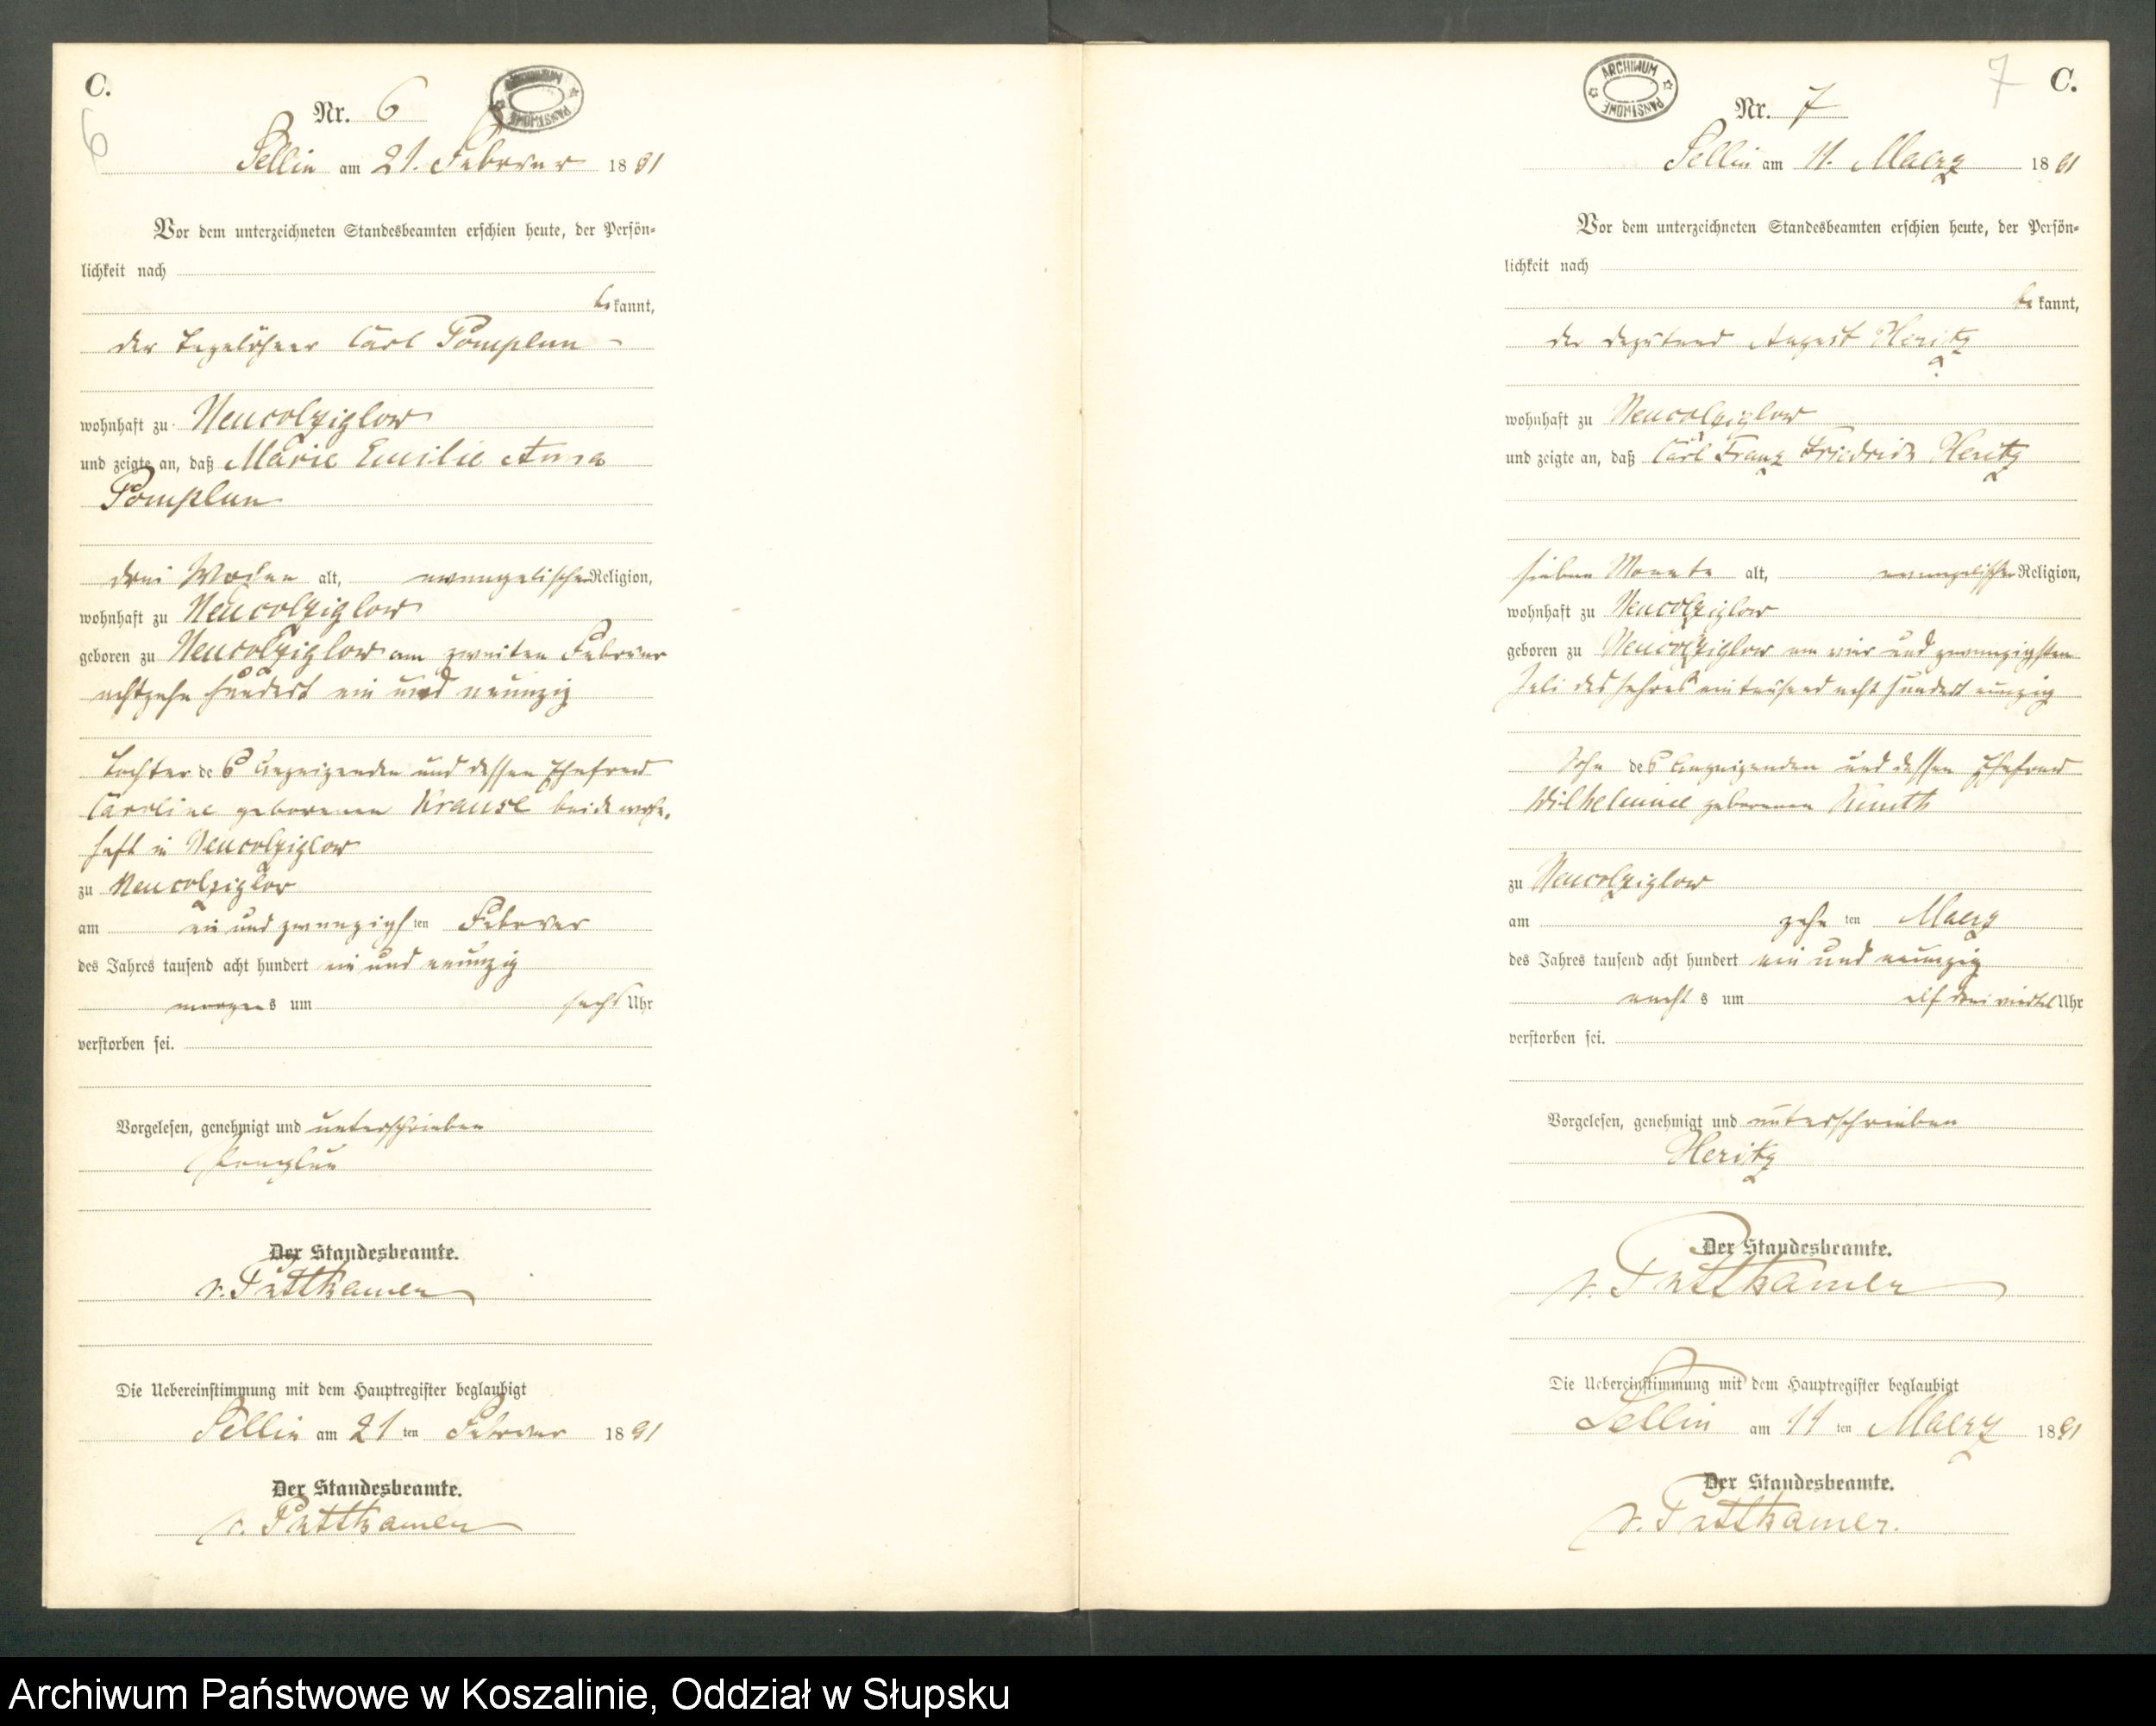 C.
6
Nr. 6
ARCHIWUM PAŃSTWOWE
Sellin am 21. Februar 1891
Vor dem unterzeichneten Standesbeamten erschien heute, der Persön-
lichkeit nach
bekannt,
der Tagelöhner Carl Pomplun
wohnhaft zu Neucolziglow
und zeigte an, daß Marie Emilie Anna
Pomplun
drei Wochen alt, evangelischer Religion,
wohnhaft zu Neucolziglow
geboren zu Neucolziglow am zweiten Februar
achtzehn hundert ein und neunzig
Tochter des Anzeigenden und dessen Ehefrau
Caroline geborenen Krause beide wohn-
haft in Neucolziglow
zu Neucolziglow
am ein und zwanzigsten Februar
des Jahres tausend acht hundert ein und neunzig
morgens um sechs Uhr
verstorben sei.
Vorgelesen, genehmigt und unterschrieben
Pomplun
Der Standesbeamte.
v. Puttkamer
Die Uebereinstimmung mit dem Hauptregister beglaubigt
Sellin am 21 ten Februar 1891
Der Standesbeamte.
v. Puttkamer
7
C.
ARCHIWUM PAŃSTWOWE
Nr. 7
Sellin am 11. Maerz 1891
Vor dem unterzeichneten Standesbeamten erschien heute, der Persön-
lichkeit nach
bekannt,
der Deputand August Heritz
wohnhaft zu Neucolziglow
und zeigte an, daß Carl Franz Friedrich Heritz
sieben Monate alt, evangelischer Religion,
wohnhaft zu Neucolziglow
geboren zu Neucolziglow am vier und zwanzigsten
Juli des Jahres eintausend acht hundert neunzig
Sohn des Anzeigenden und dessen Ehefrau
Wilhelmine geborenen
zu Neucolziglow
am zehn ten Maerz
des Jahres tausend acht hundert ein und neunzig
nachts um elf drei viertel Uhr
verstorben sei.
Vorgelesen, genehmigt und unterschrieben
Heritz
Der Standesbeamte.
v. Puttkamer
Die Uebereinstimmung mit dem Hauptregister beglaubigt
Sellin am 11 ten Maerz 1891
Der Standesbeamte.
v. Puttkamer.
Archiwum Państwowe w Koszalinie, Oddział w Słupsku